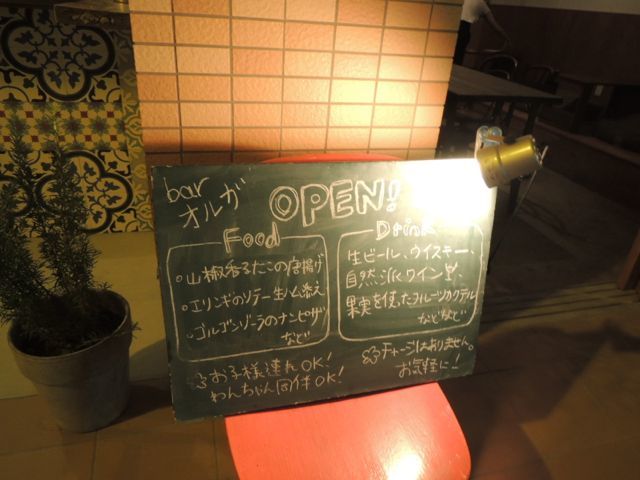 bar
オルガ
OPEN!
Food
・山椒香るたこの唐揚げ
・エリンギのソテー生ハム添え
・ゴルゴンゾーラのナンピザ
など
Drink
生ビール、ウイスキー、
自然派ワイン
果実を使ったフルーツカクテル
などなど
お子様連れOK!
わんちゃん同伴OK!
チャージはありません。
お気軽に!